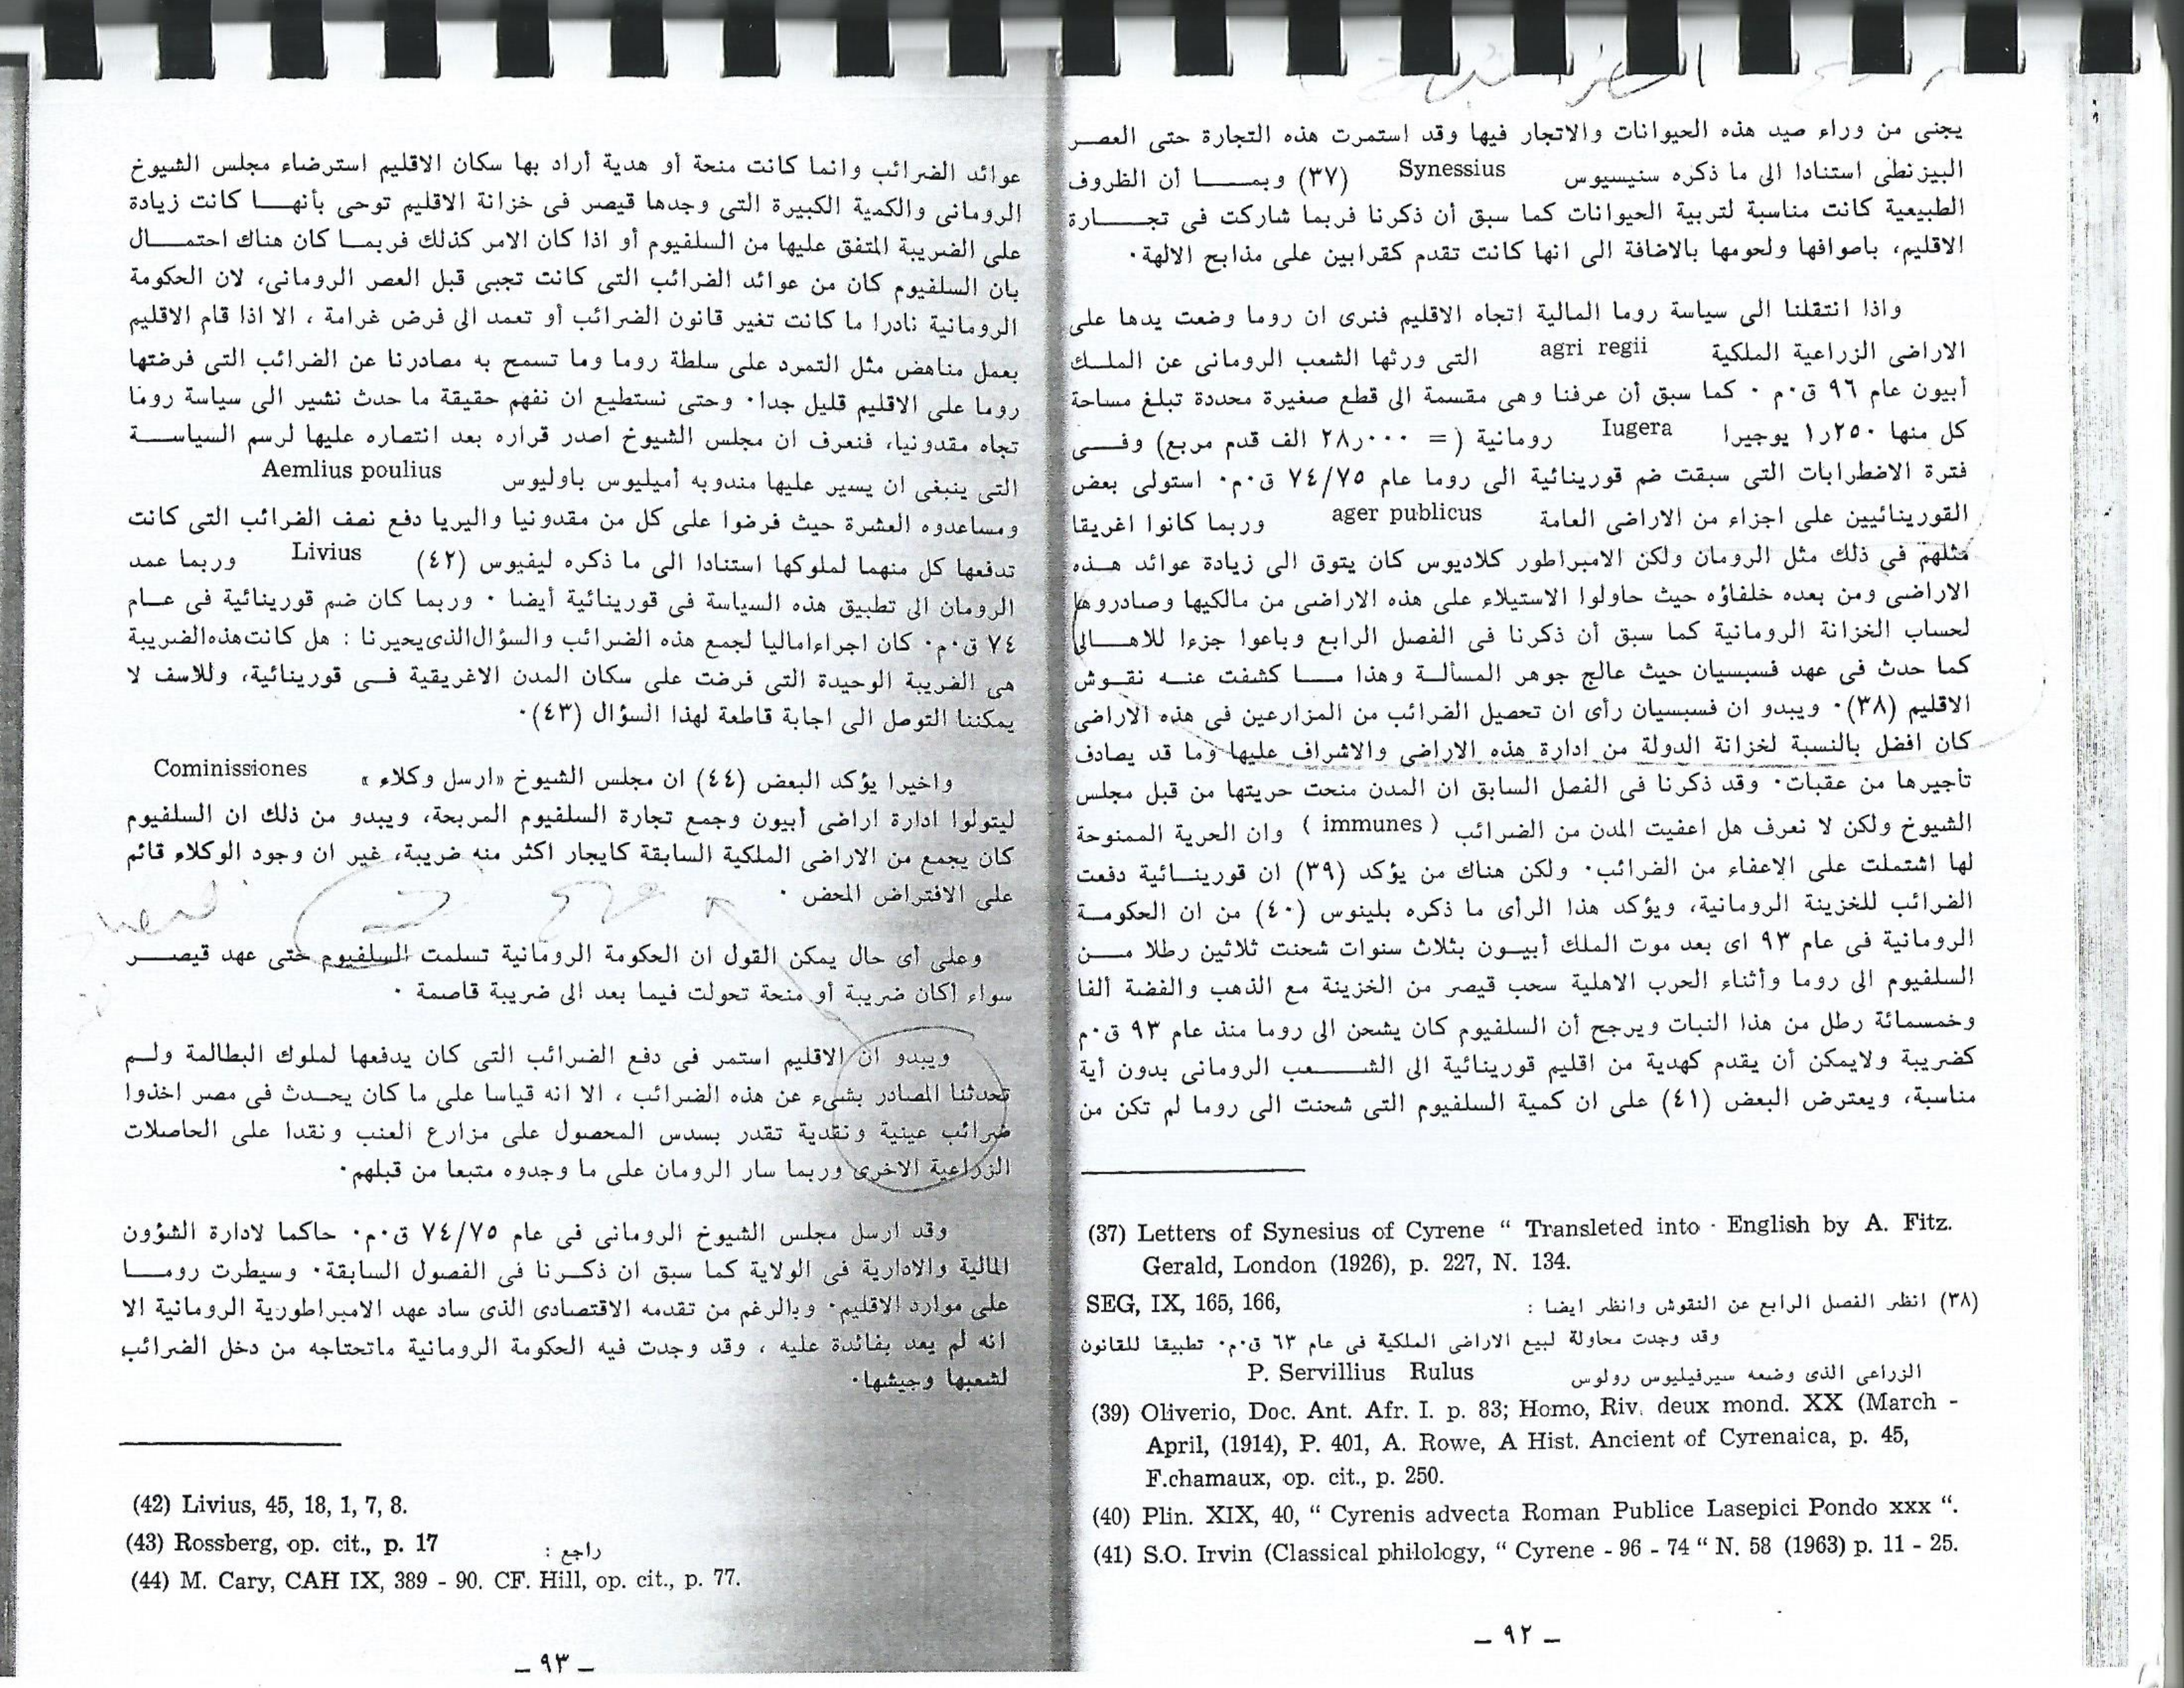 يجنى من وراء صيد هذه الحيوانات والاتجار فيها وقد استمرت هذه التجارة حتى العصر
البيزنطى استنادا الى ما ذكره سنيسيوس Synessius (٣٧) وبما أن الظروف
الطبيعية كانت مناسبة لتربية الحيوانات كما سبق أن ذكرنا فربما شاركت فى تجارة
الاقليم، باصوافها ولحومها بالاضافة الى انها كانت تقدم كقرابين على مذابح الالهة٠
واذا انتقلنا الى سياسة روما المالية اتجاه الاقليم فنرى ان روما وضعت يدها على
الاراضى الزراعية الملكية agri regii التى ورثها الشعب الرومانى عن الملك
أبيون عام ٩٦ ق٠م ٠ كما سبق أن عرفنا وهى مقسمة الى قطع صغيرة محددة تبلغ مساحة
كل منها ١٫٢٥٠ يوجيرا Iugera رومانية (= ٢٨٫٠٠٠ الف قدم مربع) وفى
فترة الاضطرابات التى سبقت ضم قورينائية الى روما عام ٧٤/٧٥ ق٠م٠ استولى بعض
القورينائيين على اجزاء من الاراضى العامة ager publicus وربما كانوا اغريقا
مثلهم فى ذلك مثل الرومان ولكن الامبراطور كلاديوس كان يتوق الى زيادة عوائد هذه
الاراضى ومن بعده خلفاؤه حيث حاولوا الاستيلاء على هذه الاراضى من مالكيها وصادروها
لحساب الخزانة الرومانية كما سبق أن ذكرنا فى الفصل الرابع وباعوا جزءا للاهالى
كما حدث فى عهد فسبسيان حيث عالج جوهر المسألة وهذا ما كشفت عنه نقوش
الاقليم (٣٨)٠ ويبدو ان فسبسيان رأى ان تحصيل الضرائب من المزارعين فى هذه الاراضى
كان افضل بالنسبة لخزانة الدولة من ادارة هذه الاراضى والاشراف عليها وما قد يصادف
تأجيرها من عقبات٠ وقد ذكرنا فى الفصل السابق ان المدن منحت حريتها من قبل مجلس
الشيوخ ولكن لا نعرف هل اعفيت المدن من الضرائب ( immunes ) وان الحرية الممنوحة
لها اشتملت على الإعفاء من الضرائب٠ ولكن هناك من يؤكد (٣٩) ان قورينائية دفعت
الضرائب للخزينة الرومانية، ويؤكد هذا الرأى ما ذكره بلينوس (٤٠) من ان الحكومة
الرومانية فى عام ٩٣ اى بعد موت الملك أبيون بثلاث سنوات شحنت ثلاثين رطلا من
السلفيوم الى روما وأثناء الحرب الاهلية سحب قيصر من الخزينة مع الذهب والفضة ألفا
وخمسمائة رطل من هذا النبات ويرجح أن السلفيوم كان يشحن الى روما منذ عام ٩٣ ق٠م
كضريبة ولايمكن أن يقدم كهدية من اقليم قورينائية الى الشعب الرومانى بدون أية
مناسبة، ويعترض البعض (٤١) على ان كمية السلفيوم التى شحنت الى روما لم تكن من
(37) Letters of Synesius of Cyrene “ Transleted into · English by A. Fitz.
Gerald, London (1926), p. 227, N. 134.
(٣٨) انظر الفصل الرابع عن النقوش وانظر ايضا : SEG, IX, 165, 166,
وقد وجدت محاولة لبيع الاراضى الملكية فى عام ٦٣ ق٠م٠ تطبيقا للقانون
الزراعى الذى وضعه سيرفيليوس رولوس P. Servillius Rulus
(39) Oliverio, Doc. Ant. Afr. I. p. 83; Homo, Riv. deux mond. XX (March -
April, (1914), P. 401, A. Rowe, A Hist. Ancient of Cyrenaica, p. 45,
F.chamaux, op. cit., p. 250.
(40) Plin. XIX, 40, “ Cyrenis advecta Roman Publice Lasepici Pondo xxx “.
(41) S.O. Irvin (Classical philology, “ Cyrene - 96 - 74 “ N. 58 (1963) p. 11 - 25.
— ٩٢ —
عوائد الضرائب وانما كانت منحة أو هدية أراد بها سكان الاقليم استرضاء مجلس الشيوخ
الرومانى والكمية الكبيرة التى وجدها قيصر فى خزانة الاقليم توحى بأنها كانت زيادة
على الضريبة المتفق عليها من السلفيوم أو اذا كان الامر كذلك فربما كان هناك احتمال
بان السلفيوم كان من عوائد الضرائب التى كانت تجبى قبل العصر الرومانى، لان الحكومة
الرومانية نادرا ما كانت تغير قانون الضرائب أو تعمد الى فرض غرامة ، الا اذا قام الاقليم
بعمل مناهض مثل التمرد على سلطة روما وما تسمح به مصادرنا عن الضرائب التى فرضتها
روما على الاقليم قليل جدا٠ وحتى نستطيع ان نفهم حقيقة ما حدث نشير الى سياسة روما
تجاه مقدونيا، فنعرف ان مجلس الشيوخ اصدر قراره بعد انتصاره عليها لرسم السياسة
التى ينبغى ان يسير عليها مندوبه أميليوس باوليوس Aemlius poulius
ومساعدوه العشرة حيث فرضوا على كل من مقدونيا واليريا دفع نصف الضرائب التى كانت
تدفعها كل منهما لملوكها استنادا الى ما ذكره ليفيوس (٤٢) Livius وربما عمد
الرومان الى تطبيق هذه السياسة فى قورينائية أيضا ٠ وربما كان ضم قورينائية فى عام
٧٤ ق٠م٠ كان اجراءاماليا لجمع هذه الضرائب والسؤال الذى يحيرنا : هل كانت هذه الضريبة
هى الضريبة الوحيدة التى فرضت على سكان المدن الاغريقية فى قورينائية، وللاسف لا
يمكننا التوصل الى اجابة قاطعة لهذا السؤال (٤٣)٠
واخيرا يؤكد البعض (٤٤) ان مجلس الشيوخ «ارسل وكلاء » Cominissiones
ليتولوا ادارة اراضى أبيون وجمع تجارة السلفيوم المربحة، ويبدو من ذلك ان السلفيوم
كان يجمع من الاراضى الملكية السابقة كايجار اكثر منه ضريبة، غير ان وجود الوكلاء قائم
على الافتراض المحض ٠
وعلى أى حال يمكن القول ان الحكومة الرومانية تسلمت السلفيوم حتى عهد قيصر
سواء أكان ضريبة أو منحة تحولت فيما بعد الى ضريبة قاصمة ٠
ويبدو ان الاقليم استمر فى دفع الضرائب التى كان يدفعها لملوك البطالمة ولم
تحدثنا المصادر بشىء عن هذه الضرائب ، الا انه قياسا على ما كان يحدث فى مصر اخذوا
ضرائب عينية ونقدية تقدر بسدس المحصول على مزارع العنب ونقدا على الحاصلات
الزراعية الاخرى وربما سار الرومان على ما وجدوه متبعا من قبلهم٠
وقد ارسل مجلس الشيوخ الرومانى فى عام ٧٤/٧٥ ق٠م٠ حاكما لادارة الشؤون
المالية والادارية فى الولاية كما سبق ان ذكرنا فى الفصول السابقة٠ وسيطرت روما
على موارد الاقليم٠ وبالرغم من تقدمه الاقتصادى الذى ساد عهد الامبراطورية الرومانية الا
انه لم يعد بفائدة عليه ، وقد وجدت فيه الحكومة الرومانية ماتحتاجه من دخل الضرائب
لشعبها وجيشها٠
(42) Livius, 45, 18, 1, 7, 8.
(43) Rossberg, op. cit., p. 17 راجع :
(44) M. Cary, CAH IX, 389 - 90. CF. Hill, op. cit., p. 77.
— ٩٣ —